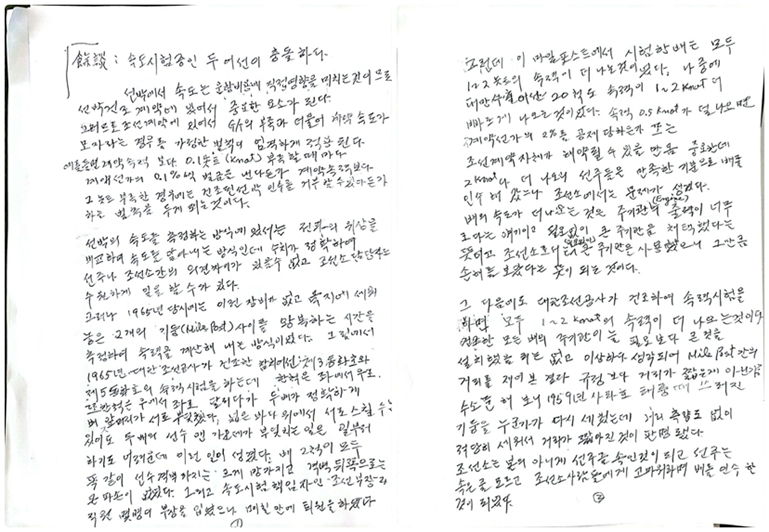 餘談 : 속도시험중인 두 어선이 충돌하다.
선박에서 속도는 운항비용에 직접영향을 미치는것이므로
선박건조 계약에 있어서 중요한 요소가 된다.
그러므로 조선계약에 있어서 부족과 더불어 계약 속도가
모자라는 경우를 가정한 벌칙이 엄격하게 적용 된다.
예를들면 계약속력 보다 0.1놋트(Knot) 부족할 때마다
계약선가의 0.1%씩 벌금은 계약속력보다
부족한 경우에는 건조된선박 인수를 거부할 수 있다든가
하는 벌칙을 두게 되는 것이다.
선박의 속도를 측정하는 방식에 있어서는 전파의 위상을
비교하여 속도를 알아내는 방식인데 수치가 정확하여
선주나 조선소간의 의견차이가 있을수 없고 조선소 담당자도
수월하게 일을 할 수가 있다.
그러나 1965년 당시에는 이런 장비가 없고 육지에 세워
놓은 2개의 기둥(Mile Post)사이를 왕복하는 시간을
측정하여 속력을 계산해 내는 방식이었다. 그 밑에서
1965년 대한조선공사가 건조한 참치어선 제3동화호와
제5동화호의 속력시험을 하는데 한척은 좌에서 우로
또한척은 우에서 좌로 달리다가 두배가 정확하게
배 앞머리가 서로 부딪쳤다. 넓은 바다 위에서 서로 스칠 수는
있어도 두배의 선수 맨 가운데가 부딪치는 일은 일부러
하기도 어려운데 이런 일이 생겼다. 배 2척이 모두
똑 같이 선수격벽까지는 크게 망가지고 격벽 뒤쪽으로는
큰 파손이 없었다. 그리고 속도시험 책임자인 조선부장과
직원 몇명이 부상을 입었으나 며칠 안에 퇴원을 하였다
①
그런데 이 마일포스트에서 시험한 배는 모두
1~2 놋트의 속력이 더 나는 것이었다. 나중에
대만수출어선 20척도 속력이 1~2 Knot 더
빠르게 나오는 것이었다. 속력 0.5 Knot가 덜 나오면
계약선가의 2%를 공제 당하든가 또는
조선계약자체가 해약될 수 있을 만큼 중요한데
2 Knot나 더 나오니 선주들은 만족한 기분으로 배를
인수해 갔으나 조선소에서는 문제가 생겼다.
배의 속도가 더 나오는 것은 주기관(Engine)의 출력이 너무
크다는 얘기이고 필요없이 큰 주기관을 채택했다는
뜻이고 조선소로서 불필요하게 큰 주기관을 사용했으니 그만큼
손해를 보았다는 뜻이 되는 것이다.
그 다음에도 대한조선공사가 건조하여 속력시험을
하면 모두 1~2 Knot의 속력이 더 나오는 것이다
건조한 모든 배의 주기관이 늘 필요보다 큰 것을
설치했을 리는 없고 이상하게 생각되어 Mile Post 간의
거리를 재여본 결과 규정 보다 거리가 짧은게 아닌가?
수소문 해 보니 1959년 사라호 태풍 때 쓰러진
기둥을 누군가가 다시 세웠는데 거리 측량도 없이
적당히 세워서 거리가 짧아진 것이 판명 됐다.
조선소는 본의 아니게 선주를 속인것이 되고 선주는
속은줄 모르고 조선소사람들에게 고마워하며 배를 인수 한
것이 되었다.
②